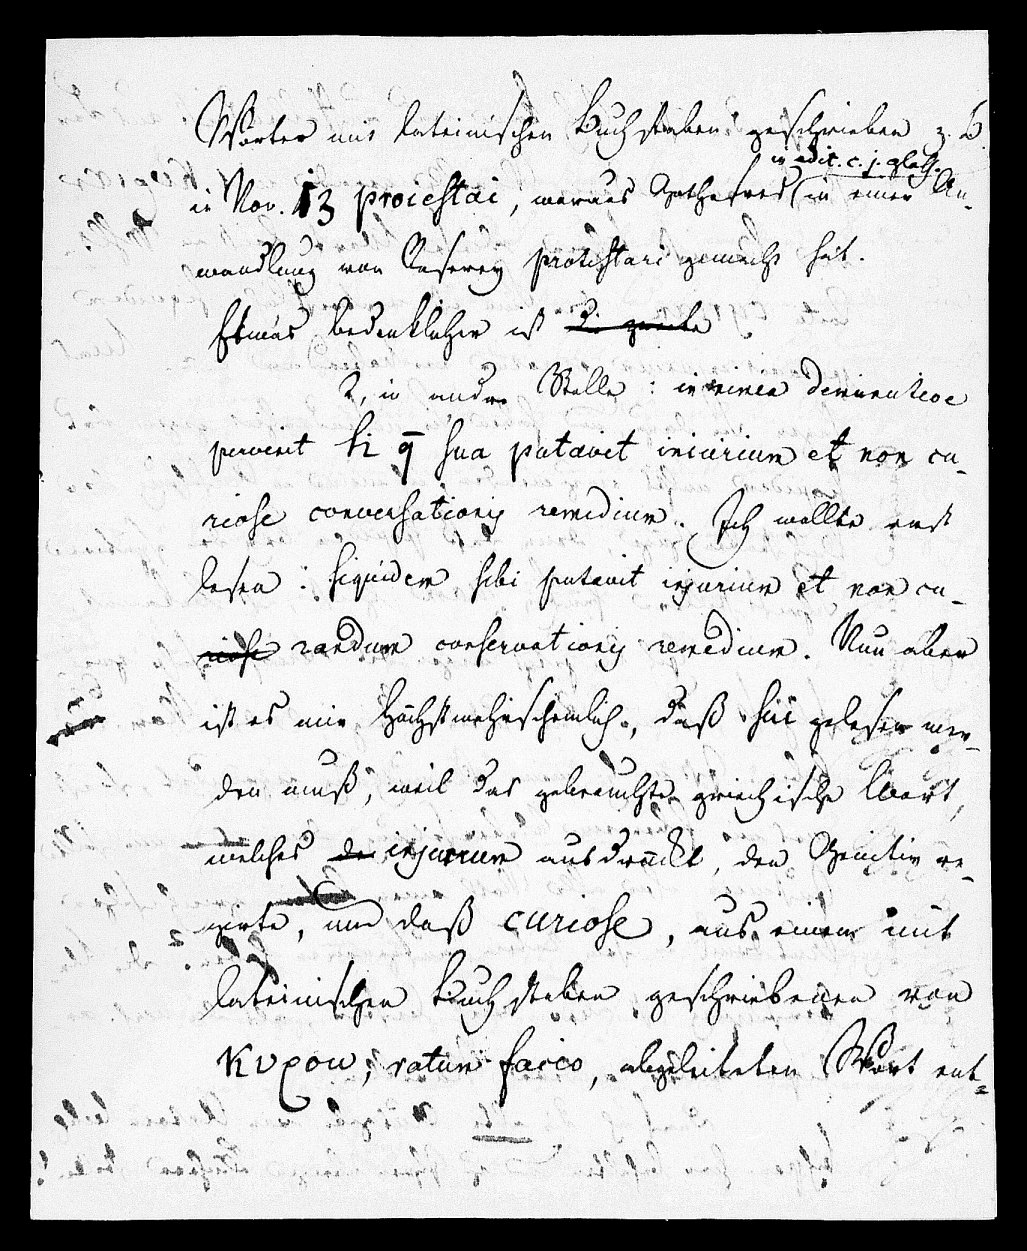 Wörter mit lateinischen Buchstaben geschrieben z. B.
in edit. c. j. gloss.
in Nov. 13 proiestai, woraus Gothofred (in einer An-
wandlung von Raserey protestari gemacht hat.
Etwas bedenklicher ist die zweite
2, in andrer Stelle:
pervenit si q̄ sua putavit iniurium et non cu-
riose conversationis remedium. Ich wollte erst
lesen: siquidem sibi putavit injurium et non cu-
riose randum conservationis remedium. Nun aber
ist es mir höchstwahrscheinlich, daß sui gelesen wer-
den muß, weil das gebrauchte griechische Wort,
welches de injurium ausdrückt, den Genitiv re-
girte, und daß curiose, aus einem mit
lateinischen Buchstaben geschriebenen von
κυρου, ratum facio, abgeleiteten Wort ent-